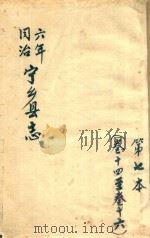 第七本
(卷十四至卷十六)
六年
同治
宁乡县志